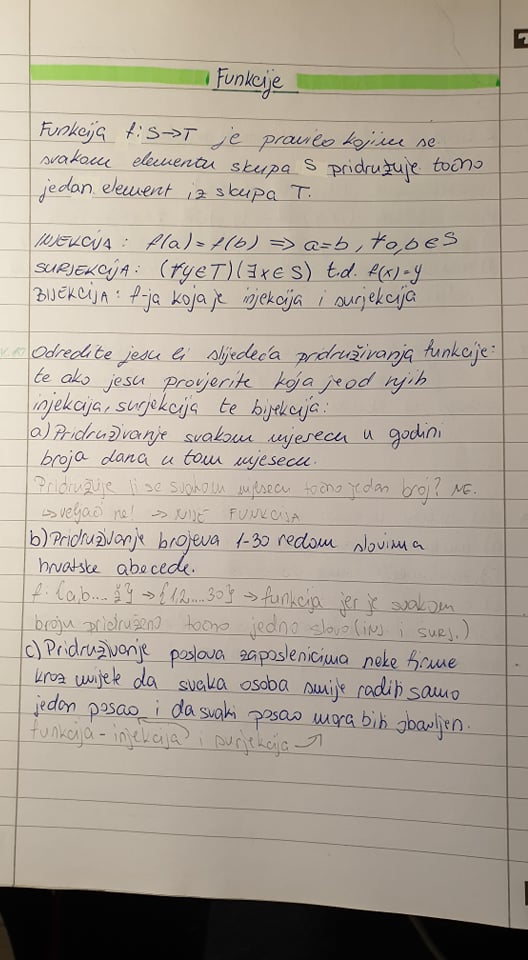 Funkcije
Funkcija f: S→T je pravilo kojim se
svakom elementu skupa S pridružuje točno
jedan element iz skupa T.
INJEKCIJA: f(a)=f(b) => a=b, ∀a,b∈S
SURJEKCIJA: (∀y∈T)(∃x∈S) t.d. f(x)=y
BIJEKCIJA: f-ja koja je injekcija i surjekcija
Odredite jesu li slijedeća pridruživanja funkcije:
te ako jesu provjerite koja je od njih
injekcija, surjekcija te bijekcija:
a) Pridruživanje svakom mjesecu u godini
broja dana u tom mjesecu.
Pridružuje li se svakom mjesecu točno jedan broj? NE.
→ veljači ne! → NIJE FUNKCIJA
b) Pridruživanje brojeva 1-30 redom slovima
hrvatske abecede.
f: {a,b....ž} → {1,2....30} → funkcija jer je svakom
broju pridruženo točno jedno slovo (inj. i surj.)
c) Pridruživanje poslova zaposlenicima neke firme
kroz uvijete da svaka osoba smije raditi samo
jedan posao i da svaki posao mora biti obavljen.
funkcija - injekcija i surjekcija →